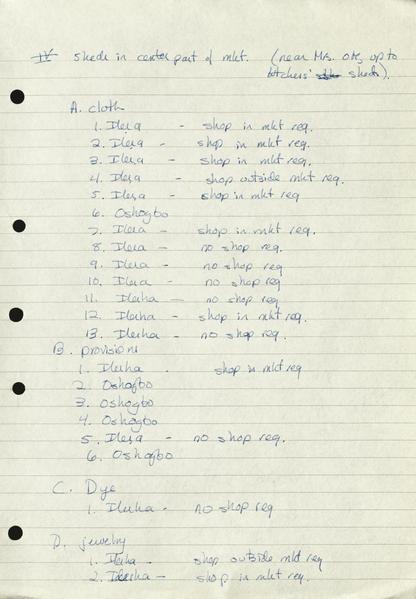 IV sheds in center part of mkt. (near Mrs. Ok, up to
butchers' sheds).
A. cloth
1. Ilesa - shop in mkt req.
2. Ilesa - shop in mkt req.
3. Ilesa - shop in mkt req.
4. Ilesa - shop outside mkt req.
5. Ilesa - shop in mkt req
6. Oshogbo
7. Ilesa - shop in mkt req.
8. Ilesa - no shop req.
9. Ilesa - no shop req
10. Ilesa - no shop req
11. Ilesha - no shop req
12. Ilesha - shop in mkt req.
13. Ilesha - no shop req.
B. provisions
1. Ilesha - shop in mkt req
2. Oshogbo
3. Oshogbo
4. Oshogbo
5. Ilesa - no shop req.
6. Oshogbo
C. Dye
1. Ilesha - no shop req
D. jewelry
1. Ilesha - shop outside mkt req
2. Ilesha - shop in mkt req.